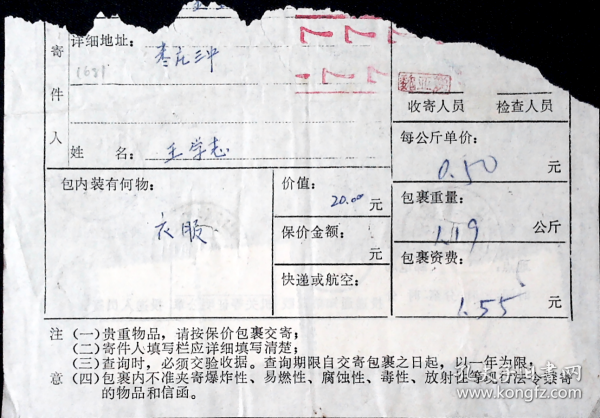 详细地址：
枣庄三中
1681
寄件人
姓 名：
王学志
收寄人员 检查人员
每公斤单价：
0.50 元
包内装有何物：
衣服
价值：
20.00 元
保价金额：
元
快递或航空：
包裹重量：
1.19 公斤
包裹资费：
1.55 元
注意
(一)贵重物品，请按保价包裹交寄；
(二)寄件人填写栏应详细填写清楚；
(三)查询时，必须交验收据。查询期限自交寄包裹之日起，以一年为限；
(四)包裹内不准夹寄爆炸性、易燃性、腐蚀性、毒性、放射性等及政府法令禁寄的物品和信函。